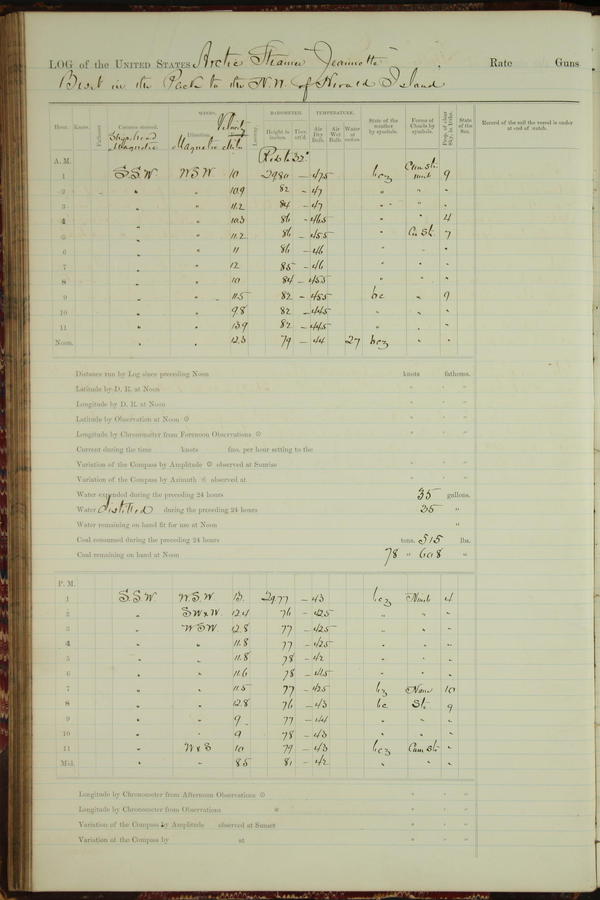 LOG of the UNITED STATES Arctic Steamer Jeannette Rate Guns
Beset in the Pack to the N.W. of Herald Island
WINDS. BAROMETER. TEMPERATURE.
Hour. Knots. Fathoms. Courses steered. Ship's head Magnetic Direction. Magnetic Velocity Leeway. Height in inches. Ther. att'd. Air Dry Bulb. Air Wet Bulb. Water at surface. State of the weather by symbols. Forms of Clouds by symbols. Prop. of clear Sky, in 10ths. State of the Sea. Record of the sail the vessel is under at end of watch.
A. M.
1 S.S.W W.S.W 10 29.80 - 47.5 bcz 9
2 " " 10.9 82 - 47 " " "
3 " " 11.2 84 - 47 " " "
4 " " 10.3 86 - 46.5 " " 4
5 " " 11.2 86 - 45.5 " Cu St. 7
6 " " 11 86 - 46 " " "
7 " " 12 85 - 46 " " "
8 " " 10 84 - 45.5 " " "
9 " " 11.5 82 - 45.5 bc " 9
10 " " 9.8 82 - 44.5 " " "
11 " " 13.9 82 - 44.5 " " "
Noon. " " 12.3 79 - 44 27 bcz " "
Distance run by Log since preceding Noon knots fathoms.
Latitude by D. R. at Noon ° ' "
Longitude by D. R. at Noon ° ' "
Latitude by Observation at Noon ☉ ° ' "
Longitude by Chronometer from Forenoon Observations ☉ ° ' "
Current during the time knots fms. per hour setting to the
Variation of the Compass by Amplitude ☉ observed at Sunrise ° ' "
Variation of the Compass by Azimuth ☉ observed at ° ' "
Water expended during the preceding 24 hours 35 gallons.
Water distilled during the preceding 24 hours 35 "
Water remaining on hand fit for use at Noon "
Coal consumed during the preceding 24 hours tons. 515 lbs.
Coal remaining on hand at Noon 78 " 608 "
P. M.
1 S.S.W W.S.W 13. 29.77 - 43 bcz Nimb 4
2 " SW x W. 12.4 76 - 42.5 " " "
3 " W S W. 12.8 77 - 42.5 " " "
4 " " 11.8 77 - 42.5 " " "
5 " " 11.8 78 - 42 " " "
6 " " 11.6 78 " " "
7 " " 11.5 77 - 42.5 bz None 10
8 " " 12.8 76 - 43 bc St. 9
9 " " 9 77 - 44 " " "
10 " " 9 78 - 43 " " "
11 " W x S 10 79 - 43 bcz Cum St. "
Mid. " " 8.5 81 - 42 " " "
Longitude by Chronometer from Afternoon Observations ☉ ° ' "
Longitude by Chronometer from Observations * ° ' "
Variation of the Compass by Amplitude observed at Sunset ° ' "
Variation of the Compass by at ° ' "